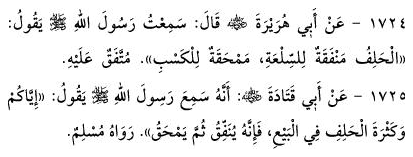 ١٧٢٤ - عَنْ أَبِي هُرَيْرَةَ ﷺ قَالَ: سَمِعْتُ رَسُولَ اللهِ ﷺ يَقُولُ:
«الْحَلِفُ مَنْفَقَةٌ لِلسِّلْعَةِ، مَمْحَقَةٌ لِلْكَسْبِ». مُتَّفَقٌ عَلَيْهِ.
١٧٢٥ - عَنْ أَبِي قَتَادَةَ ﷺ: أَنَّهُ سَمِعَ رَسُولَ اللهِ ﷺ يَقُولُ: «إِيَّاكُمْ
وَكَثْرَةَ الْحَلِفِ فِي الْبَيْعِ، فَإِنَّهُ يُنَفِّقُ ثُمَّ يَمْحَقُ». رَوَاهُ مُسْلِمٌ.